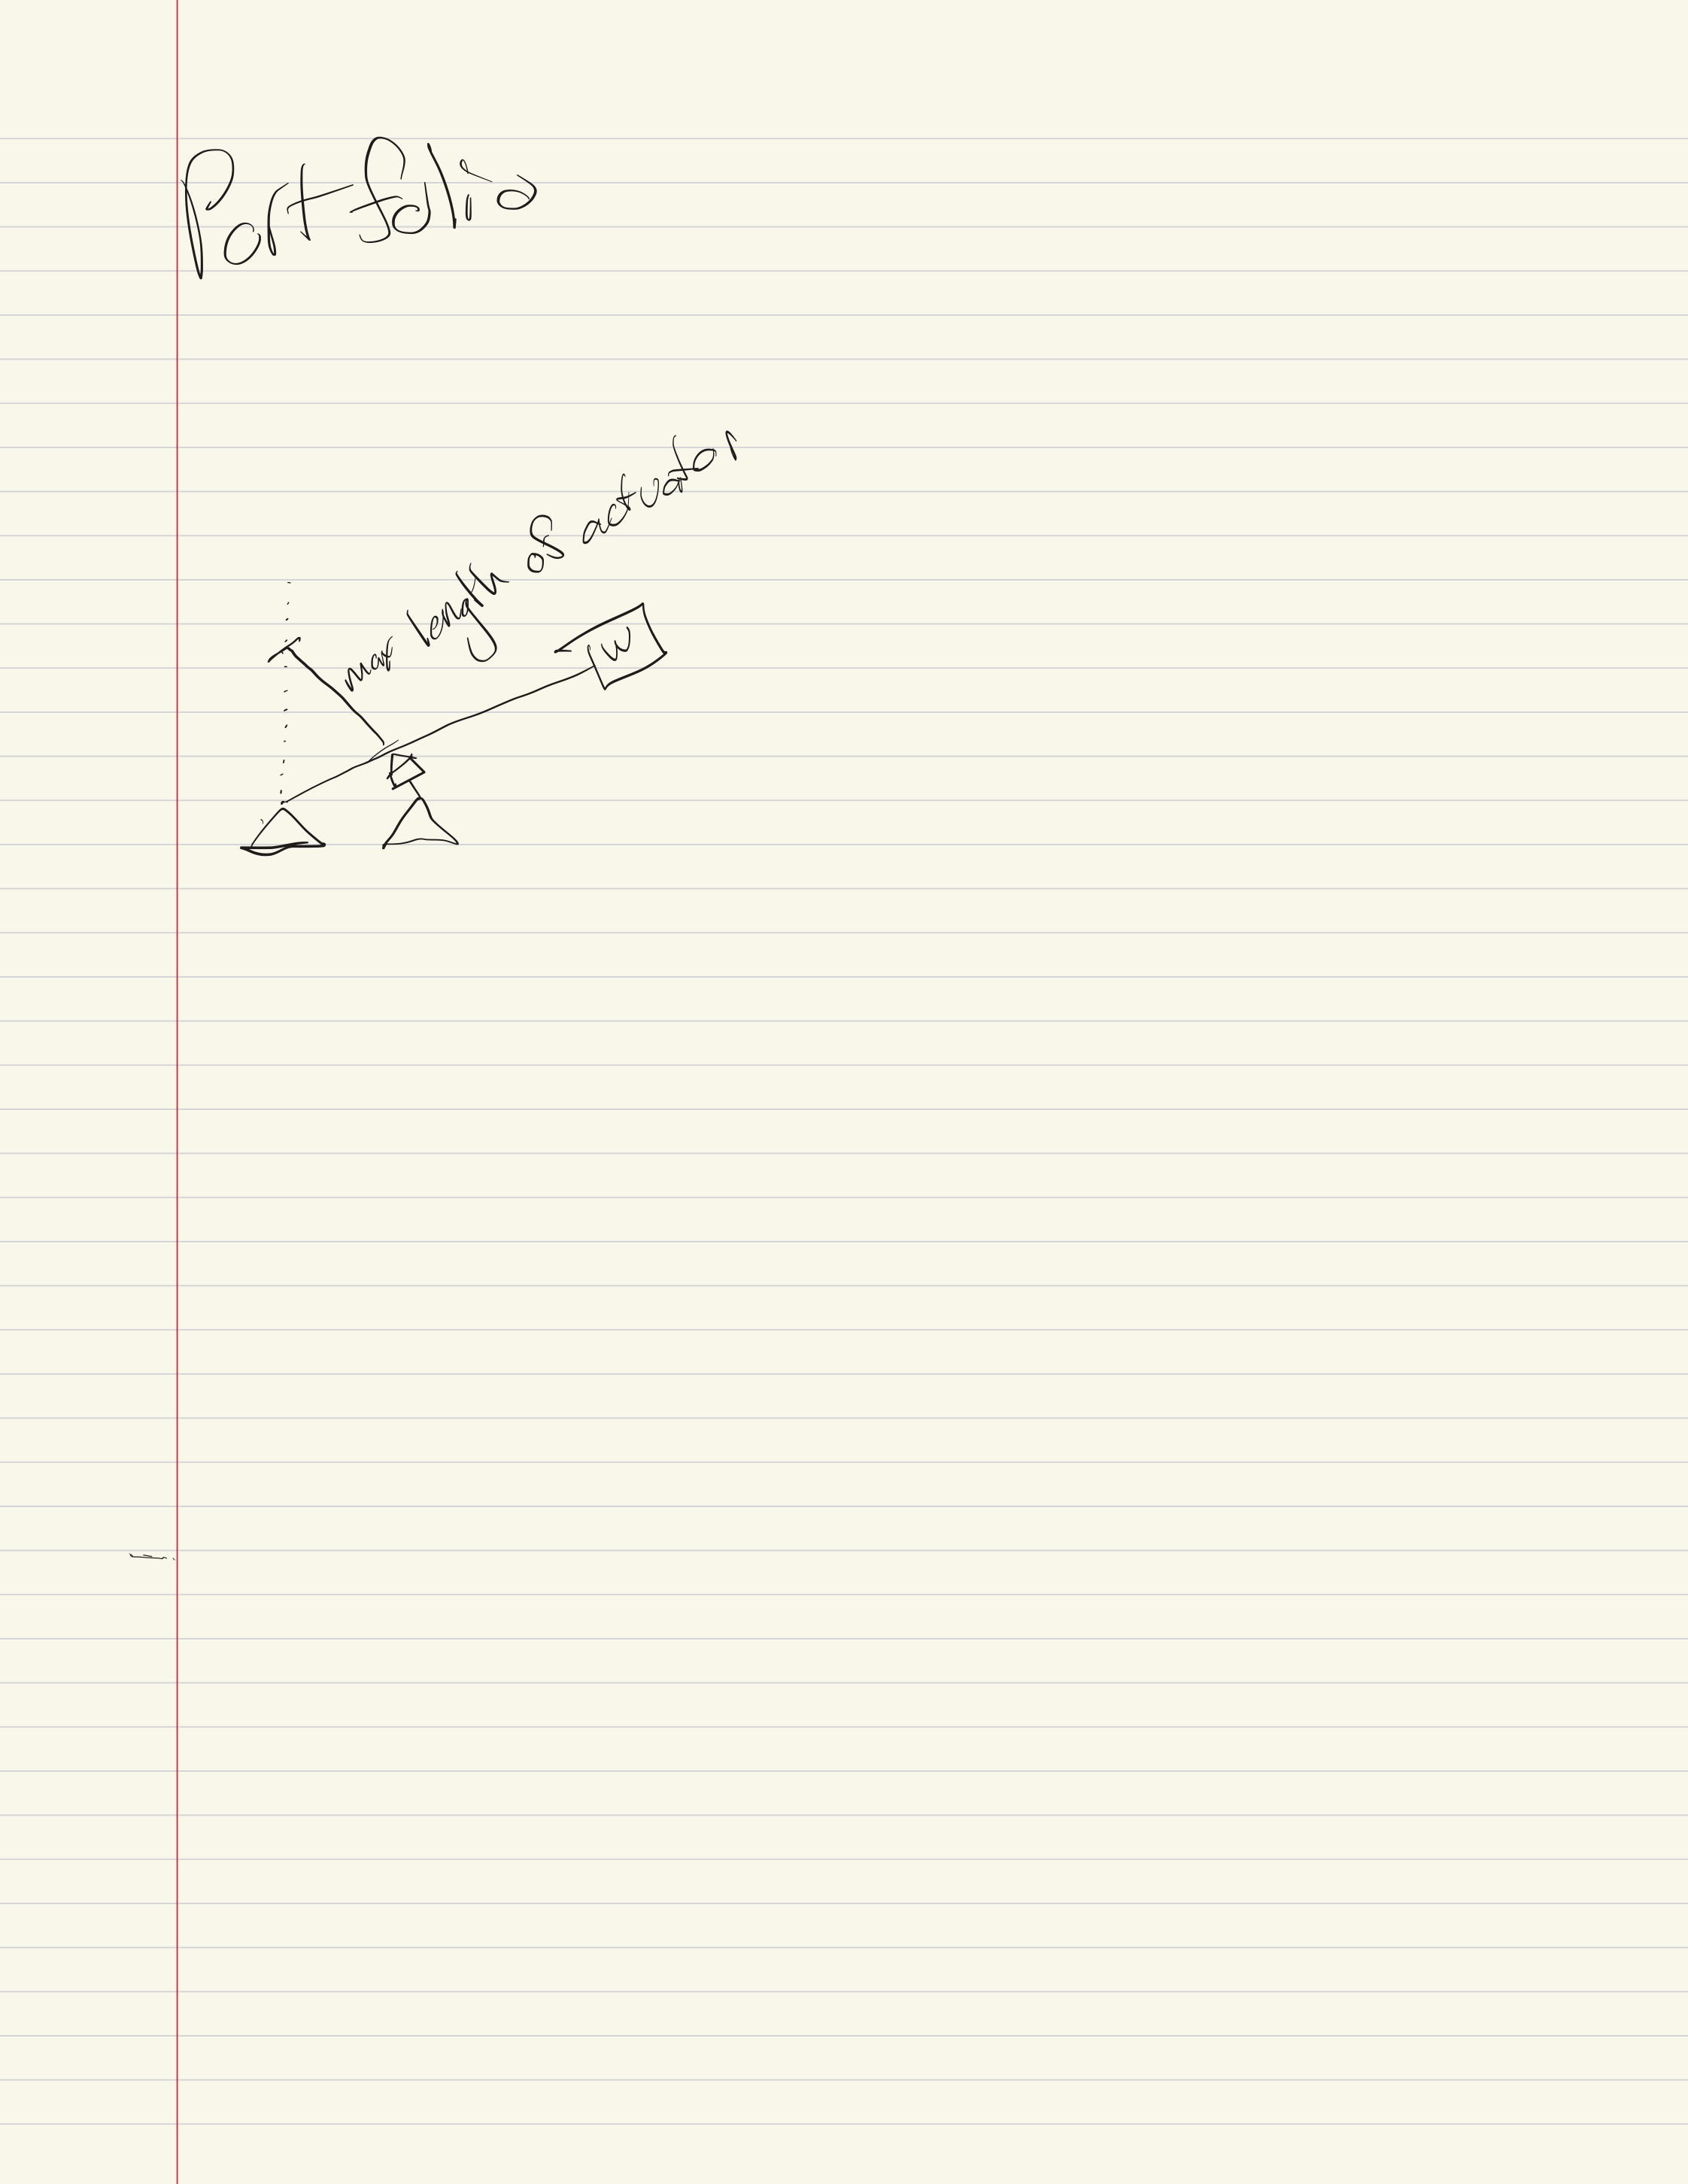 Portfolio
max length of actuator
W